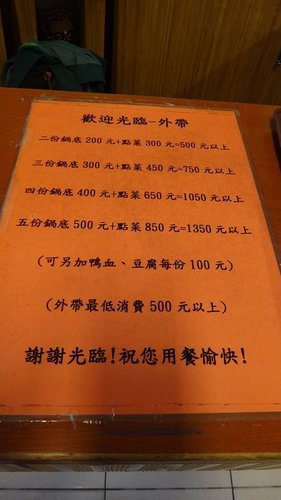 歡迎光臨-外帶
二份鍋底 200 元+點菜 300 元=500 元以上
三份鍋底 300 元+點菜 450 元=750 元以上
四份鍋底 400 元+點菜 650 元=1050 元以上
五份鍋底 500 元+點菜 850 元=1350 元以上
(可另加鴨血、豆腐每份 100 元)
(外帶最低消費 500 元以上)
謝謝光臨!祝您用餐愉快!